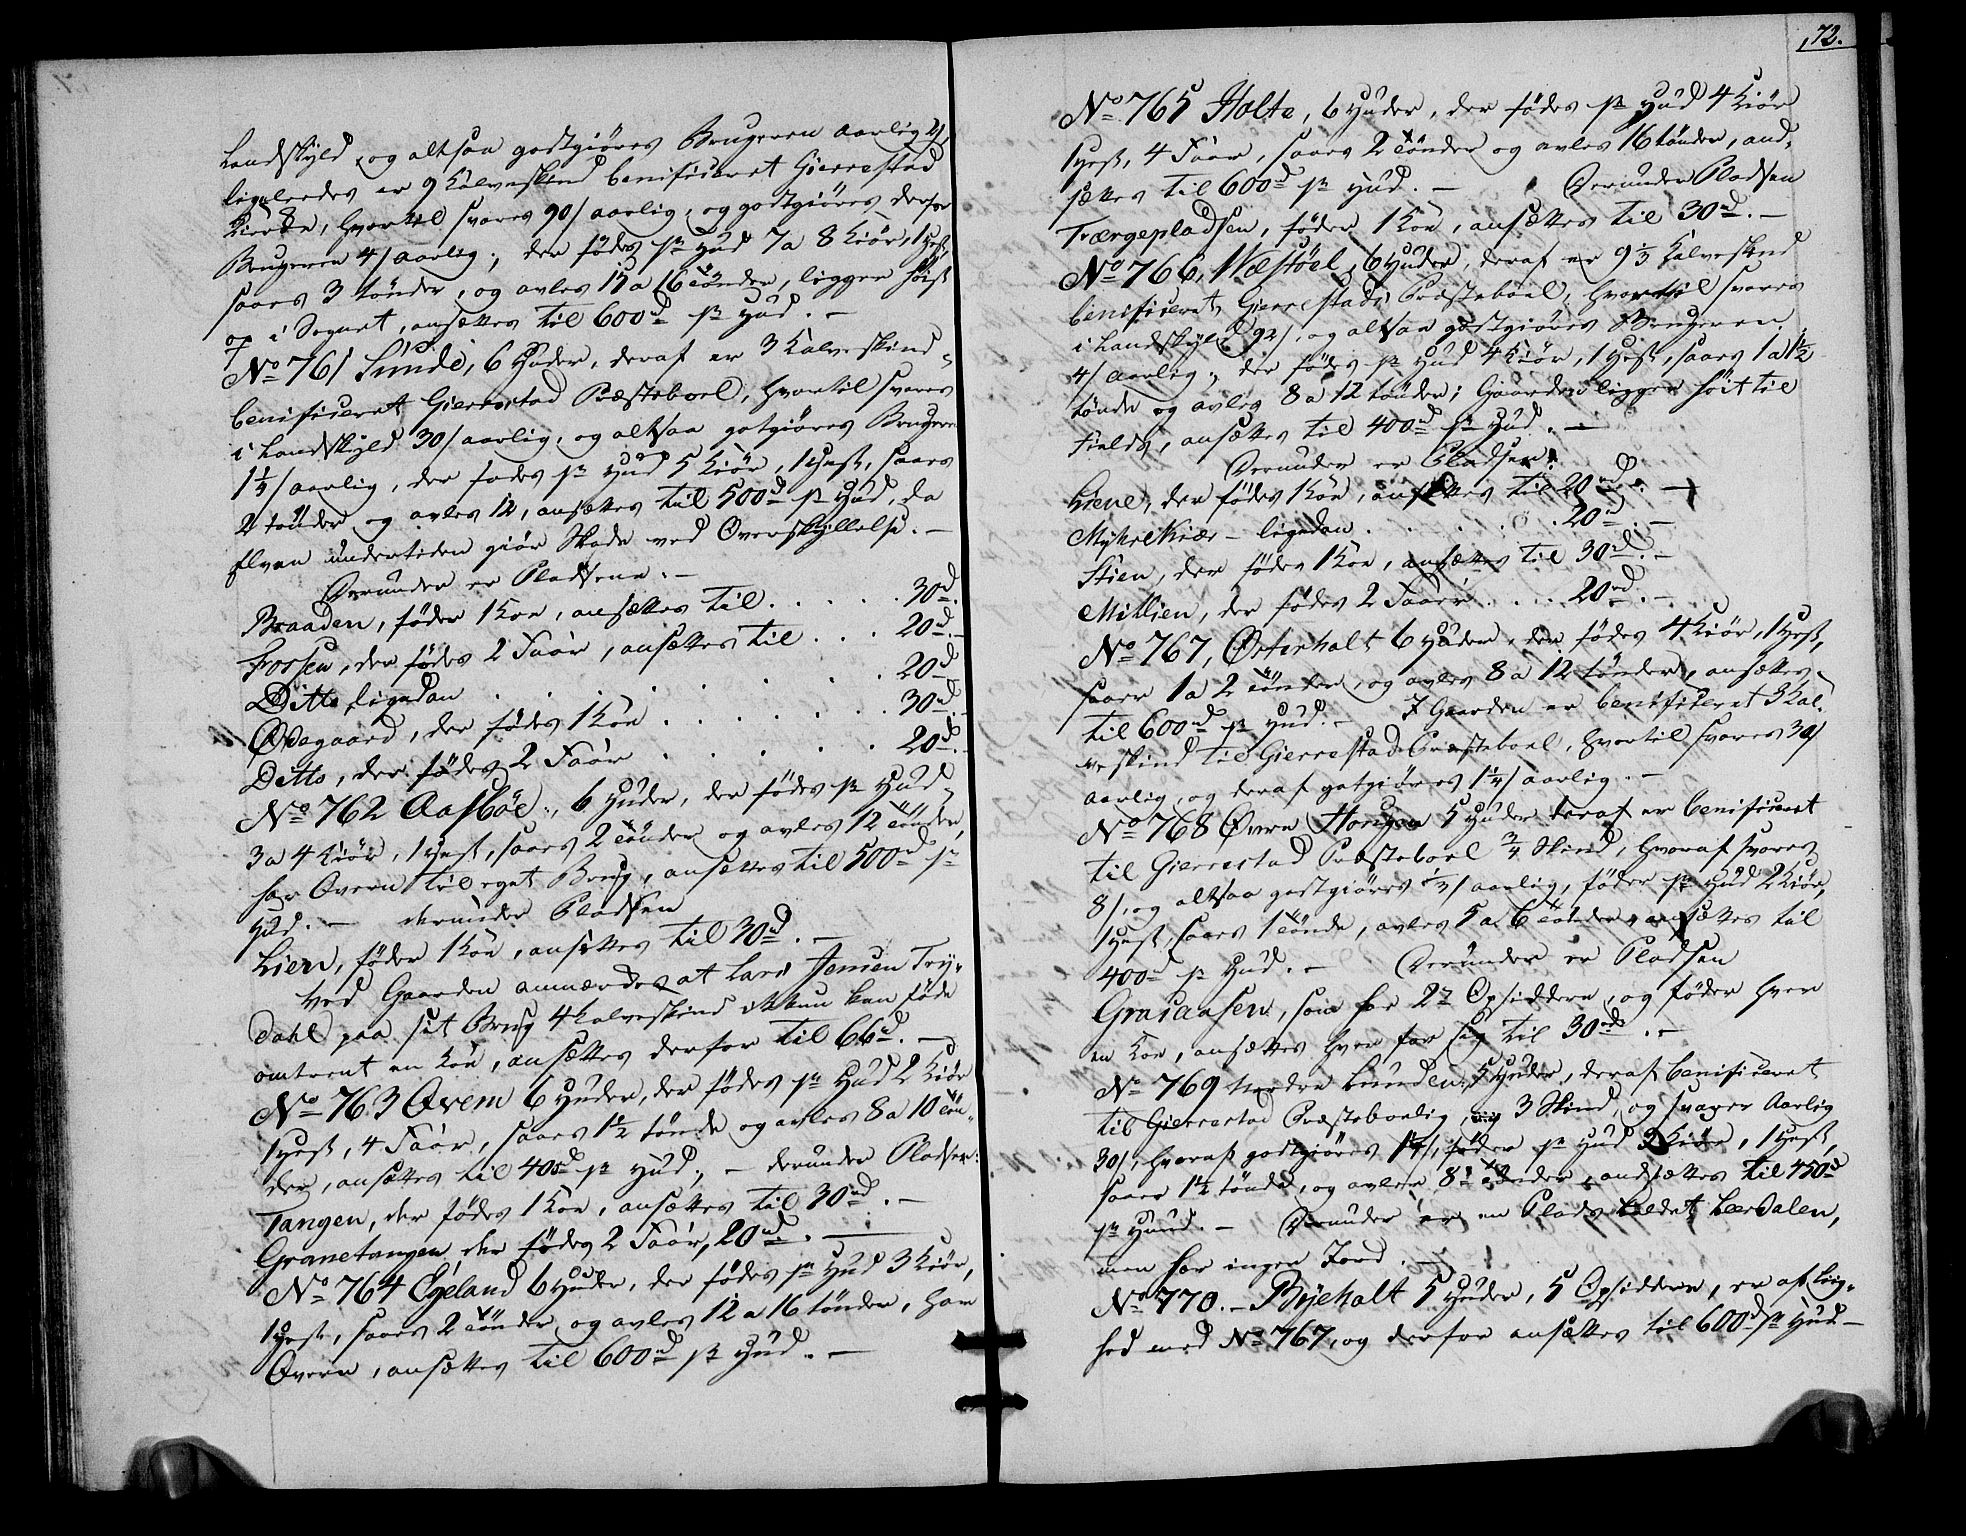 Landskyld, og altsaa godtgiøres Brugeren aarlig 4/,
ligeleedes er 9 Kalveskind benificeret Gierrestad
Kirke, hvortil svares 90/ aarlig, og godtgiøres derfor
Brugeren 4/ aarlig; der fødes pr Hud 7 a 8 Kiør, 1 Hest,
saaes 3 tønder, og avles 15 a 16 tønder, ligger høist
op i Sognet, ansættes til 600rd pr Hud. -
No 761 Sunde, 6 Huder, deraf er 3 Kalveskind
benificeret Gierrestad Præsteboel, hvortil svares
i Landskyld 30/ aarlig, og altsaa gotgiøres Brugeren
1 1/4/ aarlig, der fødes pr Hud 5 Kiør, 1 Hest, saaes
2 tønder og avles 12, ansættes til 500rd pr Hud, da
Elven undertiden giør Skade ved Overskyllelse. -
Derunder er Pladsene: -
Braaden, føder 1 Koe, ansættes til . . . . . 30rd.
Fossen, der fødes 2 Faar, ansættes til . . . 20rd.-
Ditto ligedan . . . . . . . 20rd
Ødegaard, der fødes 1 Koe . . . . . . . 30rd.-
Ditto, der fødes 2 Faar . . . . . . 20rd.-
No 762 Aasbøe, 6 Huder, der fødes pr Hud
3 a 4 Kiør, 1 Hest, saaes 2 tønder og avles 12 tønder,
har Qvern til eget Brug, ansættes til 500rd pr
Hud. - derunder Pladsen
Lien, føder 1 Koe, ansættes til 30rd. -
Ved Gaarden anmærkes at Lars Jensen Try-
dahl paa sit Brug 4 Kalveskind ikkun kan føde
omtrent en Koe, ansættes derfor til 66rd. -
No 763 Qvem 6 Huder, der fødes pr Hud 2 Kiør
1 Hest, 4 Faar, saaes 1 1/2 tønde og avles 8 a 10 tøn-
der, ansættes til 400rd pr Hud; - derunder Pladsen:
Tangen, der fødes 1 Koe, ansættes til 30rd. -
Granetangen, der fødes 2 Faar, 20rd. -
No 764 Egeland 6 Huder, der fødes pr Hud 3 Kiør,
1 Hest, saaes 2 tønder og avles 12 a 16 tønder, har
Qvern, ansættes til 600rd pr Hud. -
72.
No 765 Holte, 6 Huder, der fødes pr Hud 4 Kiør
1 Hest, 4 Faar, saaes 2 tønder og avles 16 tønder, and-
sættes til 600rd pr Hud. - Derunder Pladsen
Tværgepladsen, føder 1 Koe, ansættes til 30rd. -
No 766, Wæstøel, 6 Huder, deraf er 9 1/3 Kalveskind
benificeret Gierrestads Præsteboel, hvortil svares
i Landskyld 92/, og altsaa godtgiøres Brugeren
4/ aarlig; der fødes pr Hud 4 Kiør, 1 Hest, saaes 1 a 1 1/2
tønde og avles 8 a 12 tønder; Gaarden ligger høit til
Fields, ansættes til 400rd pr Hud. -
Derunder er Pladsene:
Liene, der fødes 1 Koe, ansættes til 20rd. -
Myhrekiær - ligedan . . . . . . 20rd. -
Stien, der føder 1 Koe, ansættes til 30rd. -
Millien, der fødes 2 Faar . . . 20rd. -
No 767, Østerholt 6 Huder, der fødes 4 Kiør, 1 Hest,
saaer 1 a 2 tønder, og avles 8 a 12 tønder, ansættes
til 600rd pr Hud. - I Gaarden er benificeret 3 Kal-
veskind til Gierrestad Præsteboel, hvortil svares 30/
aarlig, og deraf gotgiøres 1 1/4/ aarlig. -
No 768 Øvre Horigen 5 Huder deraf er benificeret
til Gierrestad Præsteboel 3/4 Skind, hvoraf svares
8/, og altsaa godtgiøres 1/3/ aarlig, føder pr Hud 2 Kiør,
1 Hest, saaes 1 tønde, avles 5 a 6 tønder, ansættes til
400rd pr Hud. - Derunder er Pladsen
Graiaasen, som har 2de Opsiddere, og føder hver
en Koe, ansættes hver for sig til 30rd. -
No 769 Nordre Lunden, 5 Huder, deraf benificeret
til Gierrestad Præstebolig, 3 Skind, og svarer Aarlig
30/, hvoraf godtgiøres 1 1/4/, føder pr Hud 3 Kiør, 1 Hest,
saaer 1 1/2 tønde, og avler 8 tønder, andsættes til 450rd
pr Huud. - Derunder er en Plads kaldet Leerdalen,
men har ingen Jord. -
No 770. - Byeholt 5 Huder, 5 Opsiddere, er af Lig-
hed med No 767, og derfor ansættes til 600rd pr Hud -